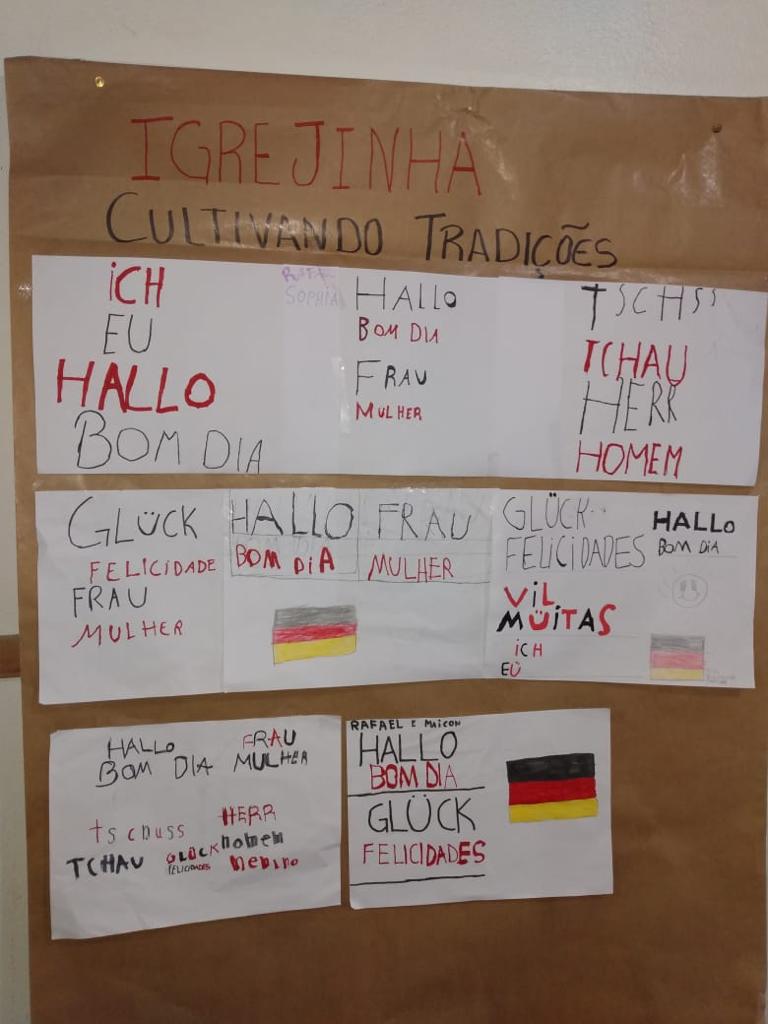 IGREJINHA
CULTIVANDO TRADIÇÕES
iCH
EU
HALLO
BOM DIA
SOPHIA
HALLO
BOM DIA
FRAU
MULHER
TSCHSS
TCHAU
HERR
HOMEM
GLÜCK
FELICIDADE
FRAU
MULHER
HALLO
BOM DiA
FRAU
MULHER
GLÜCK
FELICIDADES
ViL
MÜITAS
iCH
EÜ
HALLO
BOM DIA
HALLO
BOM DIA
FRAU
MULHER
tscbuss
TCHAU
GLÜCK
FELICIDADES
HERR
homem
menino
RAFAEL E MAICON
HALLO
BOM DIA
GLÜCK
FELICIDADES